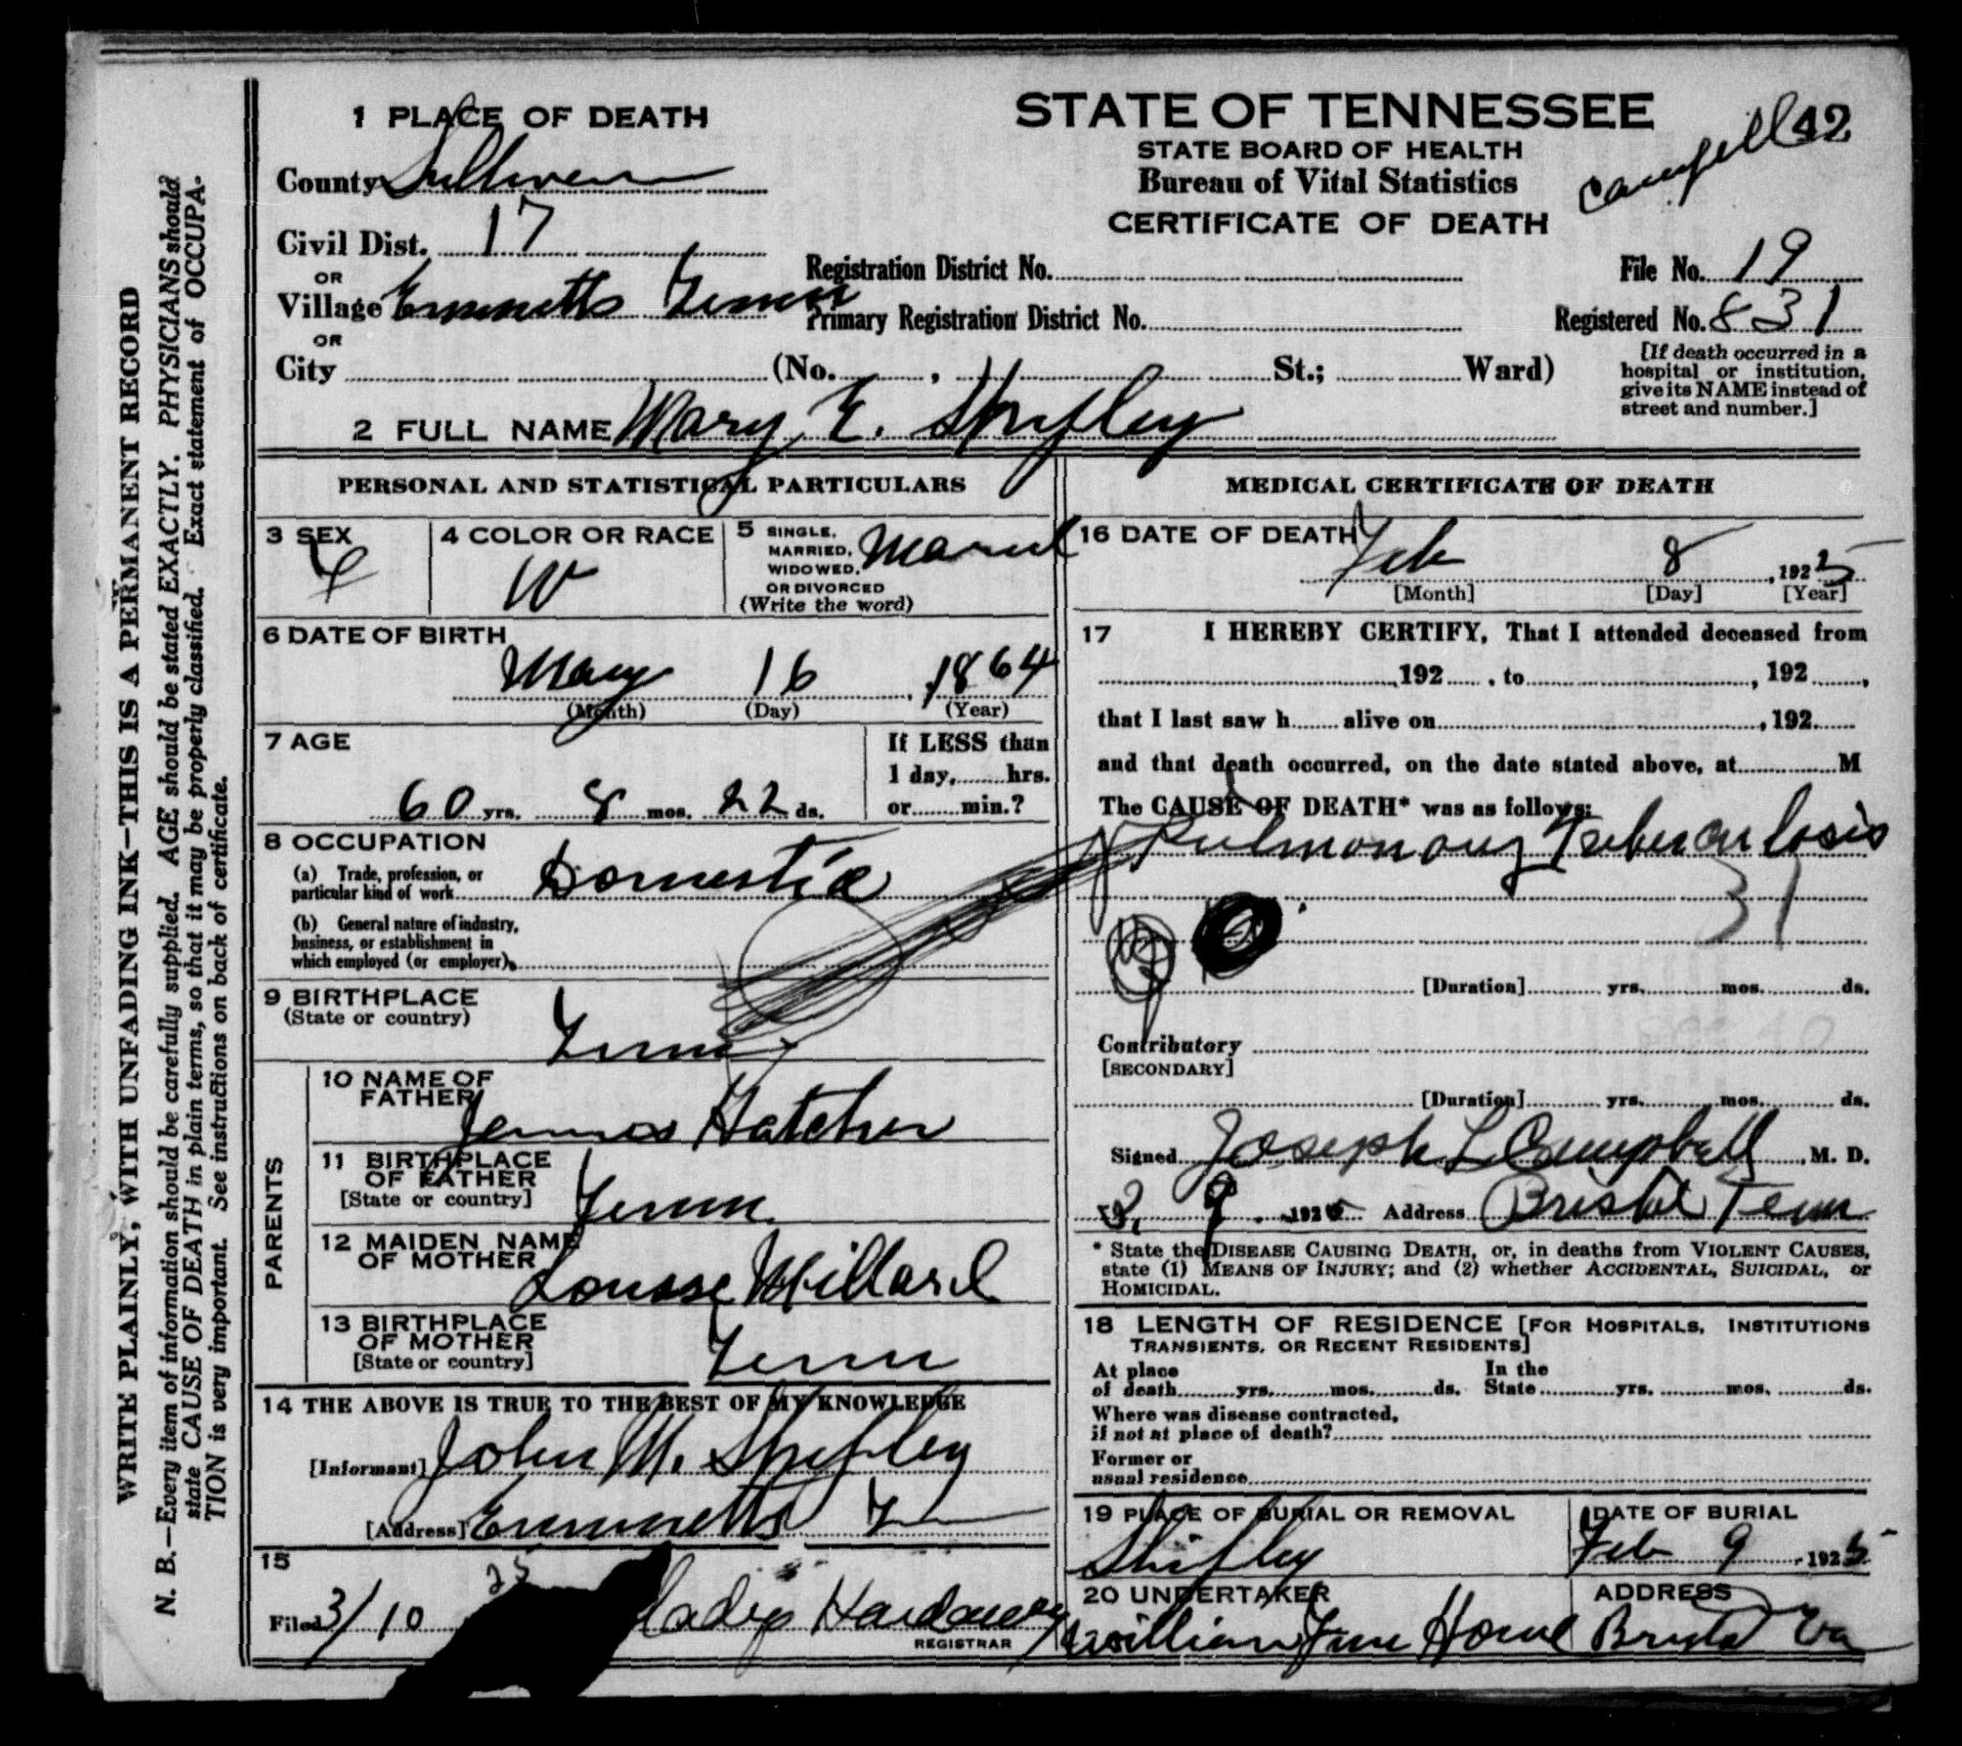 WRITE PLAINLY, WITH UNFADING INK—THIS IS A PERMANENT RECORD
N. B.—Every item of information should be carefully supplied. AGE should be stated EXACTLY. PHYSICIANS should
state CAUSE OF DEATH in plain terms, so that it may be properly classified. Exact statement of OCCUPA-
TION is very important. See instructions on back of certificate.
1 PLACE OF DEATH
County Sullivan
Civil Dist. 17
OR
Village Emmetts Tenn
OR
City (No. , St.; Ward)
STATE OF TENNESSEE
STATE BOARD OF HEALTH
Bureau of Vital Statistics
CERTIFICATE OF DEATH
42
Registration District No.
Primary Registration District No.
File No. 19
Registered No. 831
[If death occurred in a
hospital or institution,
give its NAME instead of
street and number.]
2 FULL NAME Mary E. Shipley
PERSONAL AND STATISTICAL PARTICULARS
3 SEX F
4 COLOR OR RACE W
5 SINGLE, MARRIED, WIDOWED, OR DIVORCED (Write the word) Maried
6 DATE OF BIRTH
May 16, 1864
(Month) (Day) (Year)
7 AGE
60 yrs. 8 mos. 22 ds.
If LESS than
1 day, hrs.
or min.?
8 OCCUPATION
(a) Trade, profession, or
particular kind of work Domestic
(b) General nature of industry,
business, or establishment in
which employed (or employer)
9 BIRTHPLACE
(State or country) Tenn
PARENTS
10 NAME OF
FATHER James Hatcher
11 BIRTHPLACE
OF FATHER
[State or country] Tenn.
12 MAIDEN NAME
OF MOTHER Millard
13 BIRTHPLACE
OF MOTHER
[State or country] Tenn
14 THE ABOVE IS TRUE TO THE BEST OF MY KNOWLEDGE
[Informant] John M. Shipley
[Address] Emmetts T
15
Filed 3/10 25 Hardaway
REGISTRAR
MEDICAL CERTIFICATE OF DEATH
16 DATE OF DEATH
Feb 8, 1925
[Month] [Day] [Year]
17 I HEREBY CERTIFY, That I attended deceased from
, 192 , to , 192 ,
that I last saw h alive on , 192
and that death occurred, on the date stated above, at M
The CAUSE OF DEATH* was as follows:
Pulmonary Tuberculosis
31
[Duration] yrs. mos. ds.
Contributory
[SECONDARY]
[Duration] yrs. mos. ds.
Signed Joseph L Campbell, M. D.
2, 9, 1925 Address Bristol Tenn
* State the DISEASE CAUSING DEATH, or, in deaths from VIOLENT CAUSES,
state (1) MEANS OF INJURY; and (2) whether ACCIDENTAL, SUICIDAL, or
HOMICIDAL.
18 LENGTH OF RESIDENCE [FOR HOSPITALS, INSTITUTIONS
TRANSIENTS, OR RECENT RESIDENTS]
At place In the
of death yrs. mos. ds. State yrs. mos. ds.
Where was disease contracted,
if not at place of death?
Former or
usual residence
19 PLACE OF BURIAL OR REMOVAL
Shipley
DATE OF BURIAL
Feb 9, 1925
20 UNDERTAKER
Fun Home
ADDRESS
Bristol Va